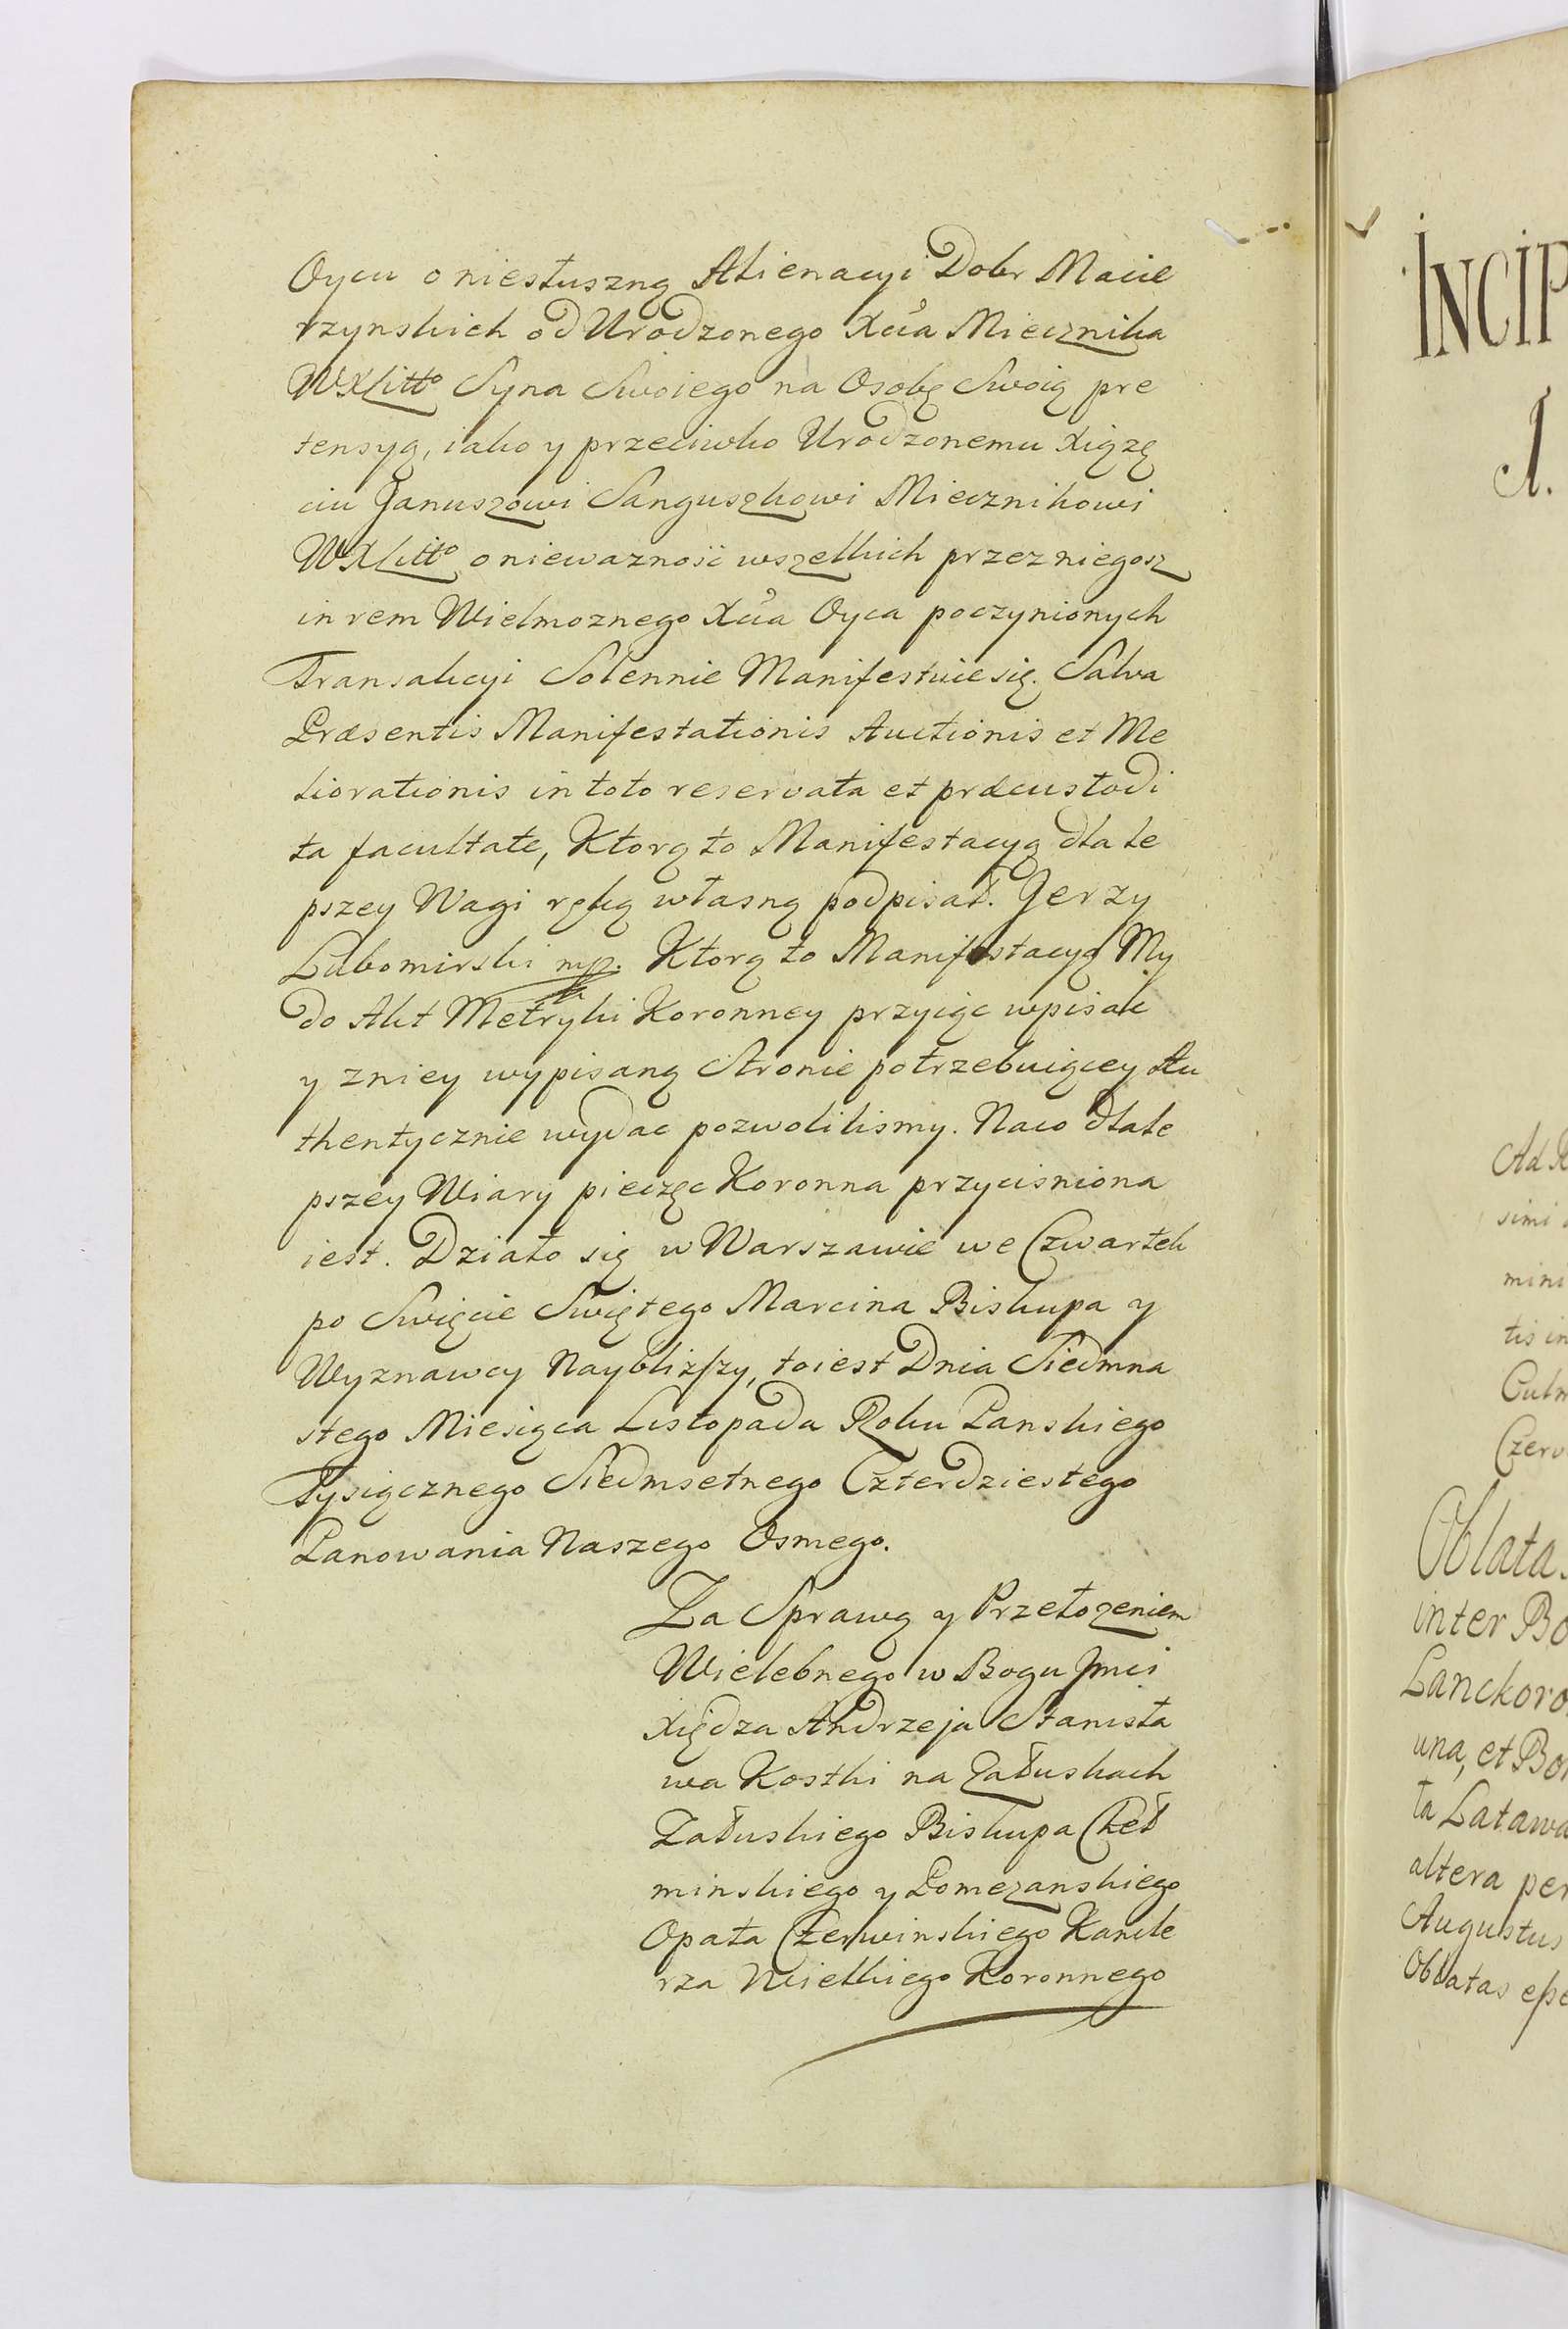 Oycu o niesłuszną Alienacyi Dobr Macie
rzynskich od Urodzonego Xcia Miecznika
WXLitto Syna Swoiego na Osobę Swoią pre
tensyą, iako y przeciwko Urodzonemu Xiążę
ciu Januszowi Sanguszkowi Miecznikowi
WXLitto o niewaznosć wszelkich przez niegosz
in rem Wielmoznego Xcia Oyca poczynionych
Transakcyi Solennie Manifestuie się. Salva
Præsentis Manifestationis Auctionis et Me
liorationis in toto reservata et præcustodi
ta facultate, Ktorą to Manifestacyą dla le
pszey Wagi ręką własną podpisał. Jerzy
Lubomirski mp. Ktorą to Manifestacyą My
do Akt Metryki Koronney przyiąc wpisac
y zniey wypisaną Stronie potrzebuiącey Au
thentycznie wydac pozwolilismy. Naco dla le
pszey Wiary pieczęc Koronna przycisniona
iest. Działo się w Warszawie we Czwartek
po Swięcie Swiętego Marcina Biskupa y
Wyznawcy Nayblizszy, toiest Dnia Siedmna
stego Miesiąca Listopada Roku Panskiego
Tysiącznego Siedmsetnego Czterdziestego
Panowania Naszego Osmego.
Za Sprawą y Przełozeniem
Wielebnego w Bogu Jmci
Xiędza Andrzeja Stanisła
wa Kostki na Załuskach
Załuskiego Biskupa Cheł
minskiego y Pomezanskiego
Opata Czerwinskiego Kancle
rza Wielkiego Koronnego
INCIP
A.
Ad R
simi
mini
tis in
Culm
Czerw
Oblata
inter Bo
Lanckoro
una, et Bo
ta Latawa
altera per
Augustus
Oblatas esse